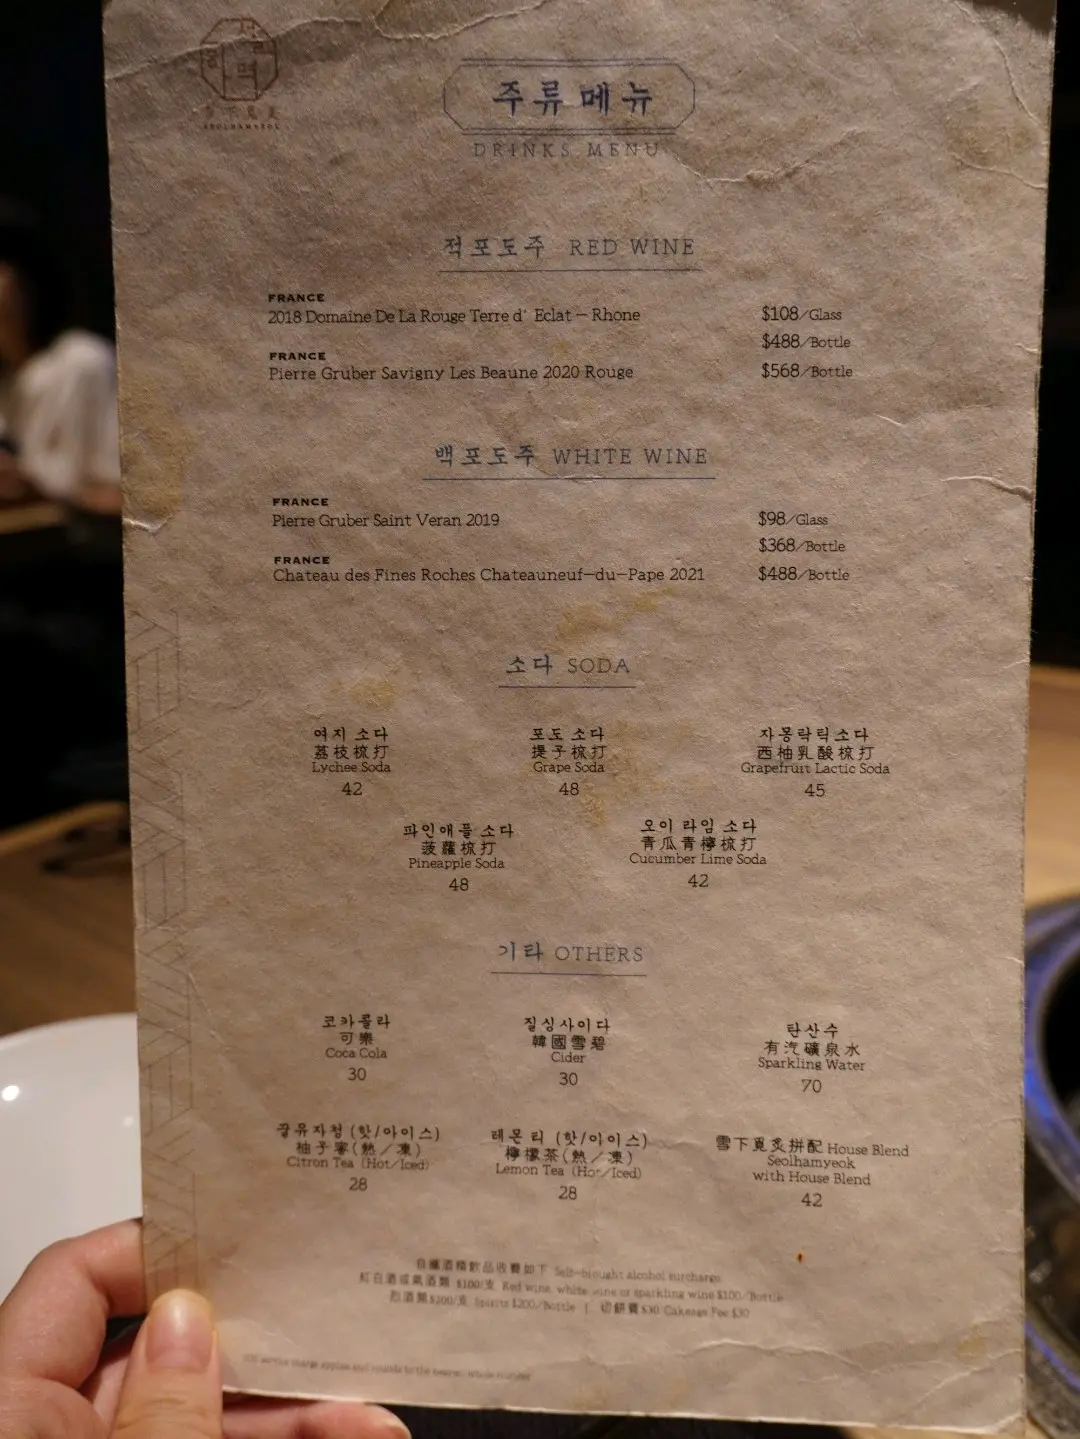 설
하
멱
雪下覓炙
SEOLHAMYEOK
주류메뉴
DRINKS MENU
적포도주 RED WINE
FRANCE
2018 Domaine De La Rouge Terre d' Eclat – Rhone $108/Glass
$488/Bottle
FRANCE
Pierre Gruber Savigny Les Beaune 2020 Rouge $568/Bottle
백포도주 WHITE WINE
FRANCE
Pierre Gruber Saint Veran 2019 $98/Glass
$368/Bottle
FRANCE
Chateau des Fines Roches Chateauneuf-du-Pape 2021 $488/Bottle
소다 SODA
여지 소다
荔枝梳打
Lychee Soda
42
포도 소다
提子梳打
Grape Soda
48
자몽락틱소다
西柚乳酸梳打
Grapefruit Lactic Soda
45
파인애플 소다
菠蘿梳打
Pineapple Soda
48
오이 라임 소다
青瓜青檸梳打
Cucumber Lime Soda
42
기타 OTHERS
코카콜라
可樂
Coca Cola
30
칠싱사이다
韓國雪碧
Cider
30
탄산수
有汽礦泉水
Sparkling Water
70
꿀유자청 (핫/아이스)
柚子蜜(熱/凍)
Citron Tea (Hot/Iced)
28
레몬티 (핫/아이스)
檸檬茶(熱/凍)
Lemon Tea (Hot/Iced)
28
雪下覓炙拼配 House Blend
Seolhamyeok
with House Blend
42
自攜酒精飲品收費如下 Self-brought alcohol surcharge
紅白酒或氣酒類 $100/支 Red wine, white wine or sparkling wine $100/Bottle
烈酒類$200/支 Spirits $200/Bottle | 切餅費$30 Cakeage Fee $30
service charge applies and rounds to the nearest whole number